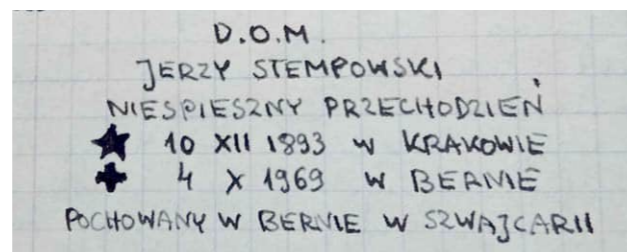 D.O.M.
JERZY STEMPOWSKI
NIESPIESZNY PRZECHODZIEŃ
★ 10 XII 1893 W KRAKOWIE
✚ 4 X 1969 W BERNIE
POCHOWANY W BERNIE W SZWAJCARII